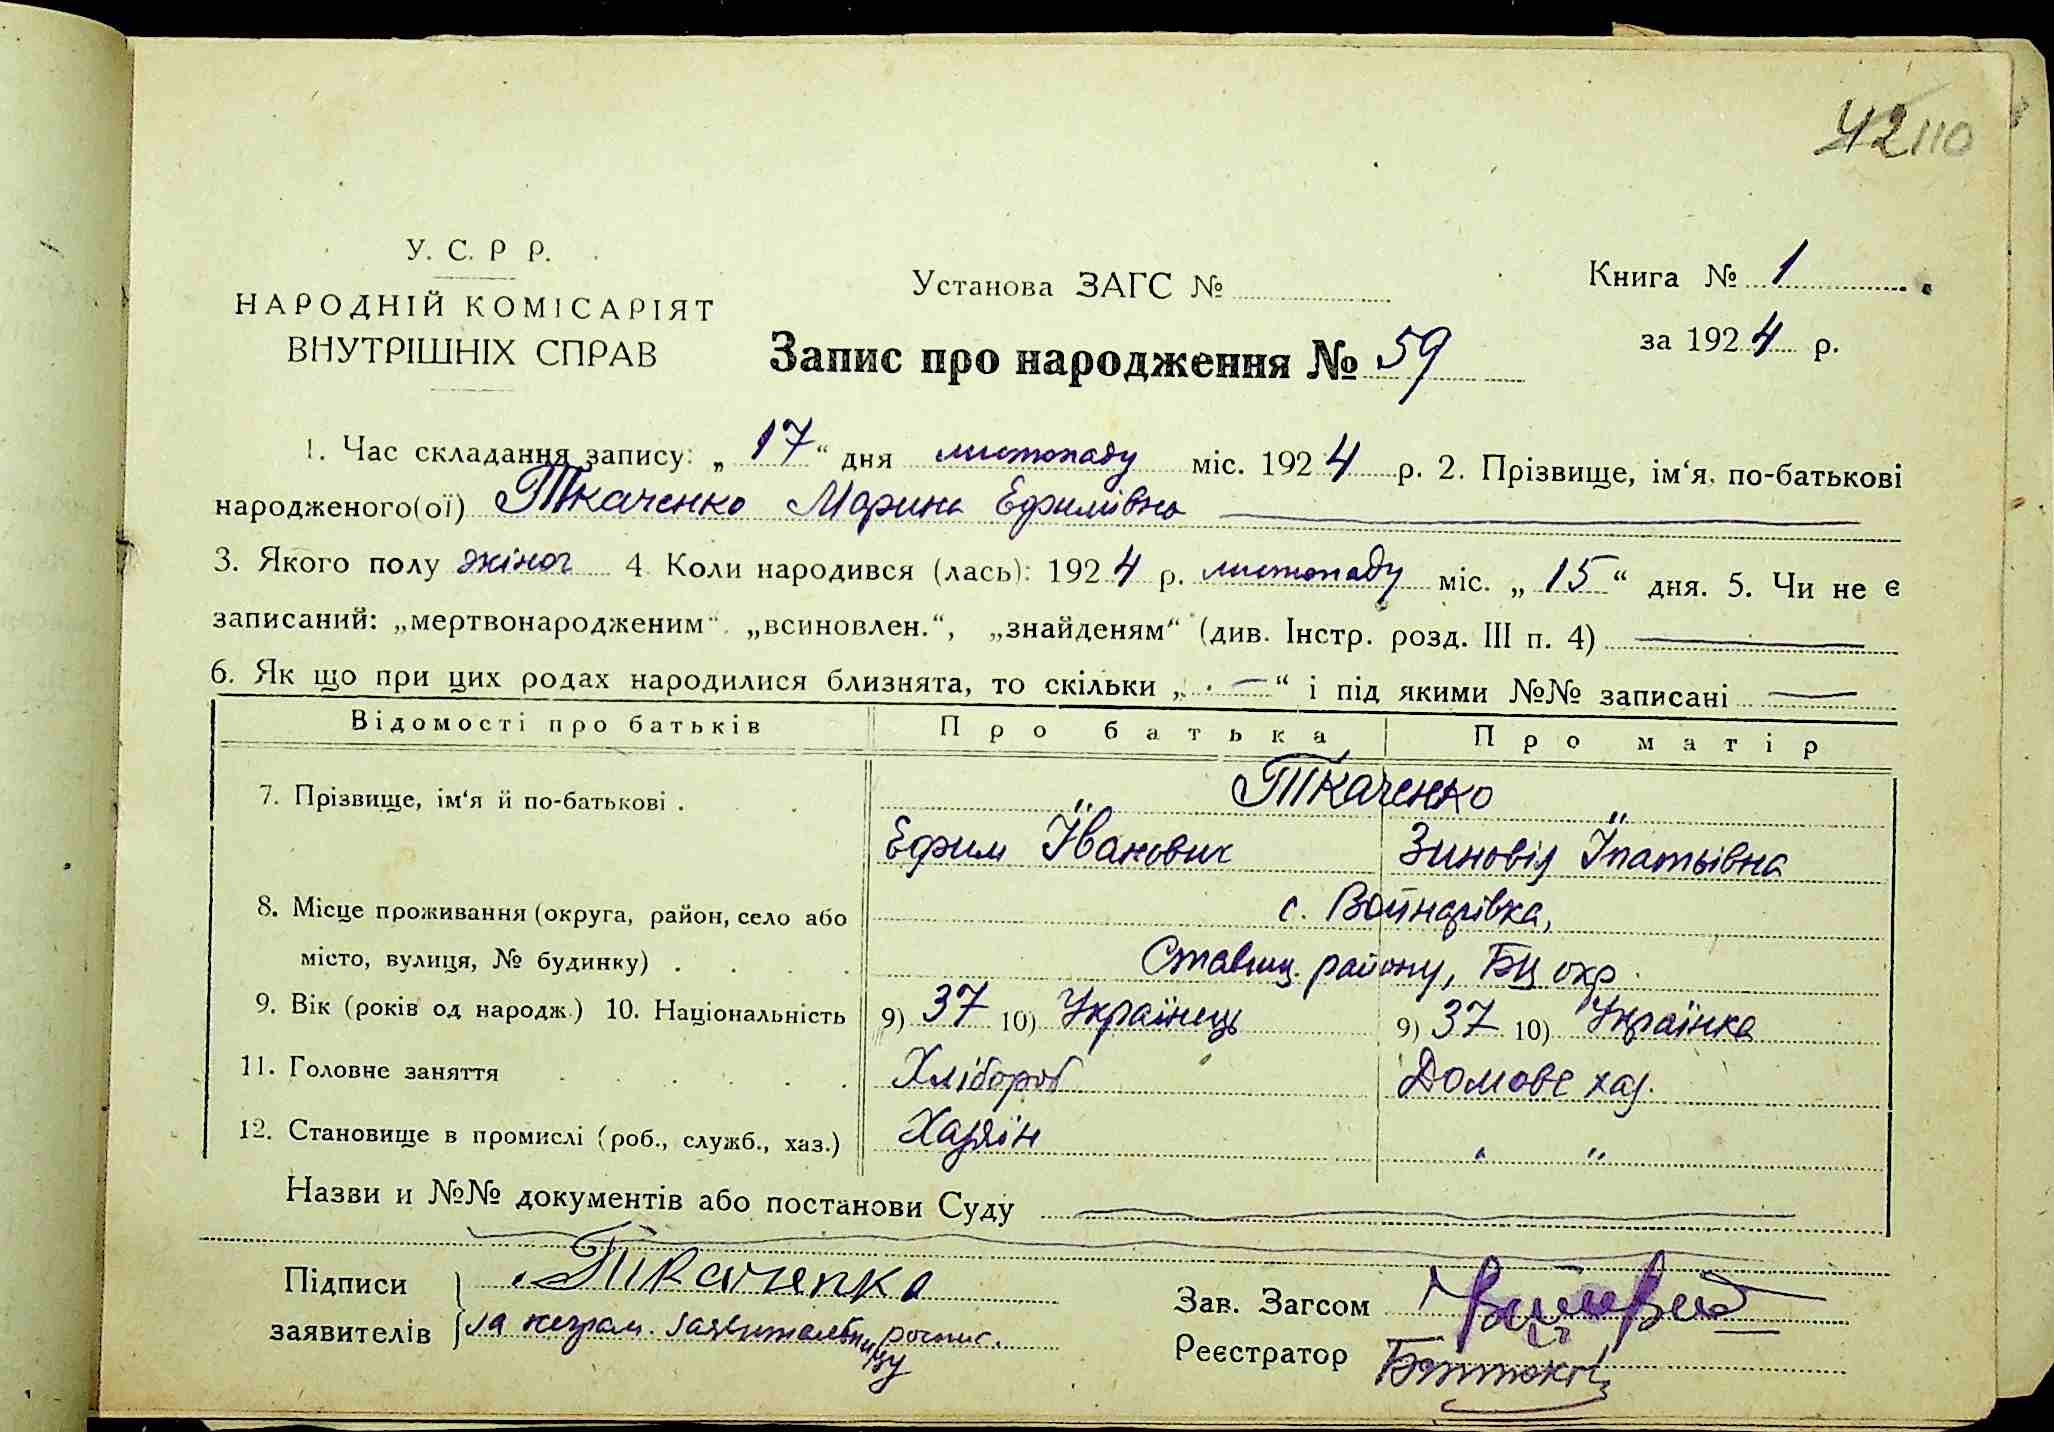 42 110
У. С. Р Р.
НАРОДНІЙ КОМІСАРІЯТ
ВНУТРІШНІХ СПРАВ
Установа ЗАГС №
Книга № 1
за 1924 р.
Запис про народження № 59
1. Час складання запису: „17“ дня листопаду міс. 1924 р. 2. Прізвище, ім‘я, по-батькові
народженого(ої) Ткаченко Марина Ефимівна
3. Якого полу жіноч 4. Коли народився (лась): 1924 р. листопаду міс. „15“ дня. 5. Чи не є
записаний: „мертвонародженим“. „всиновлен.“, „знайденям“ (див. Інстр. розд. III п. 4) —
6. Як що при цих родах народилися близнята, то скільки „—“ і під якими №№ записані —
Відомості про батьків Про батька Про матір
7. Прізвище, ім‘я й по-батькові . Ткаченко
Ефим Іванович Зиновія Іпатьівна
8. Місце проживання (округа, район, село або с. Войнарівка,
місто, вулиця, № будинку) . . . . Ставищ. району, БЦ окр.
9. Вік (років од народж.) 10. Національність 9) 37 10) Українець 9) 37 10) Українка
11. Головне заняття . . . . . Хлібороб Домове хаз.
12. Становище в промислі (роб., служб., хаз.) Хазяїн " "
Назви и №№ документів або постанови Суду
Підписи Ткаченко
заявителів за неграм. заявительницу роспис.
Зав. Загсом
Реєстратор